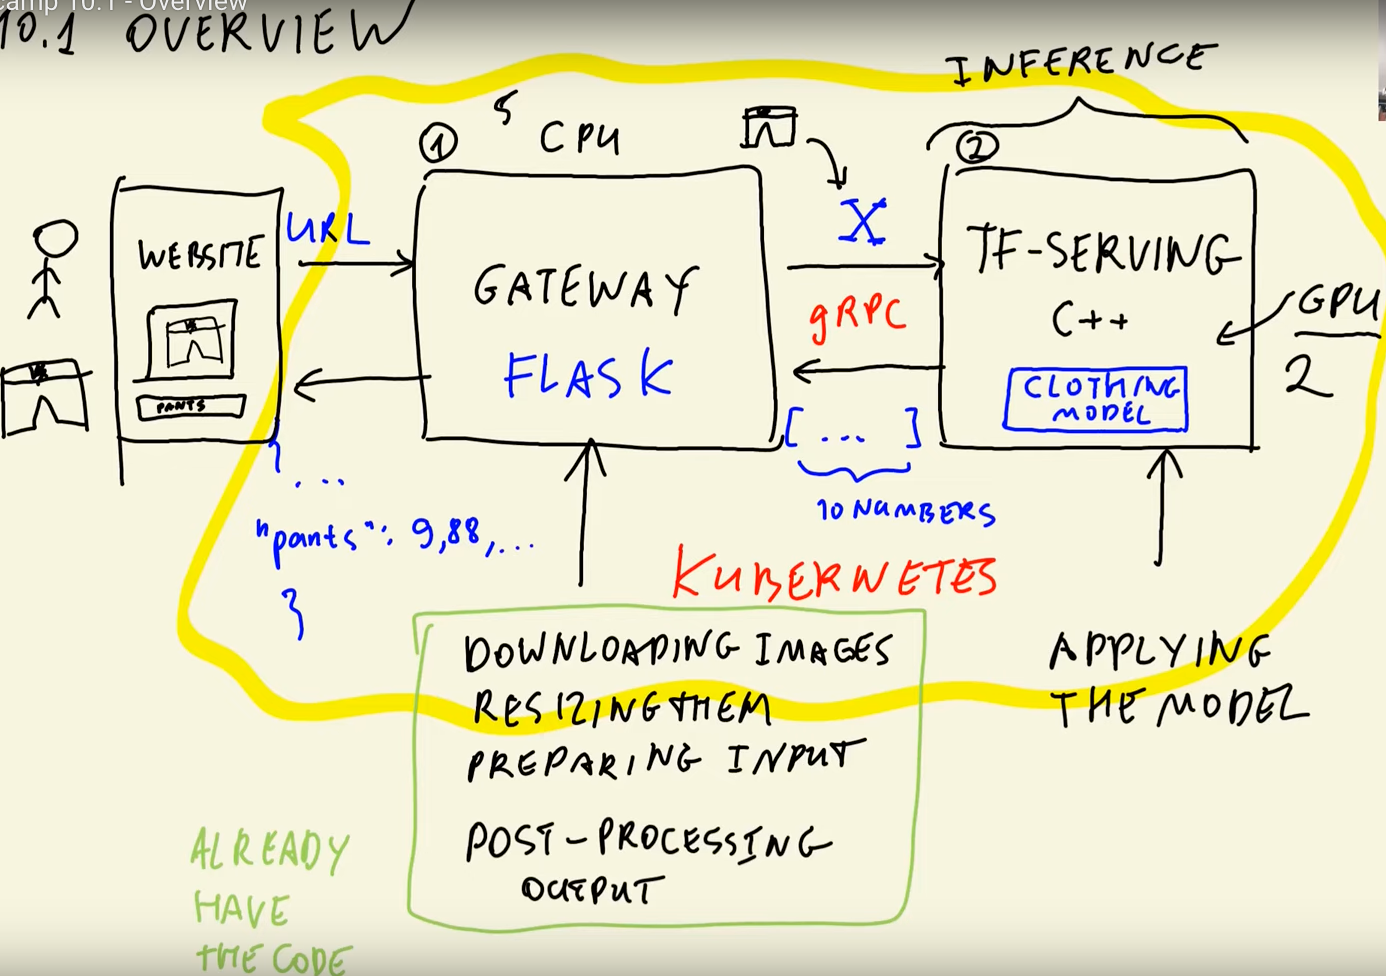 camp 10.1 - Overview
10.1 OVERVIEW
INFERENCE
5
① CPU
②
URL
X
WEBSITE
GATEWAY
FLASK
gRPC
TF-SERVING
C++
GPU
2
CLOTHING
MODEL
PANTS
[ ... ]
10 NUMBERS
{
...
"pants": 9,88,...
}
KUBERNETES
DOWNLOADING IMAGES
RESIZING THEM
PREPARING INPUT
POST-PROCESSING
OUTPUT
APPLYING
THE MODEL
ALREADY
HAVE
THE CODE